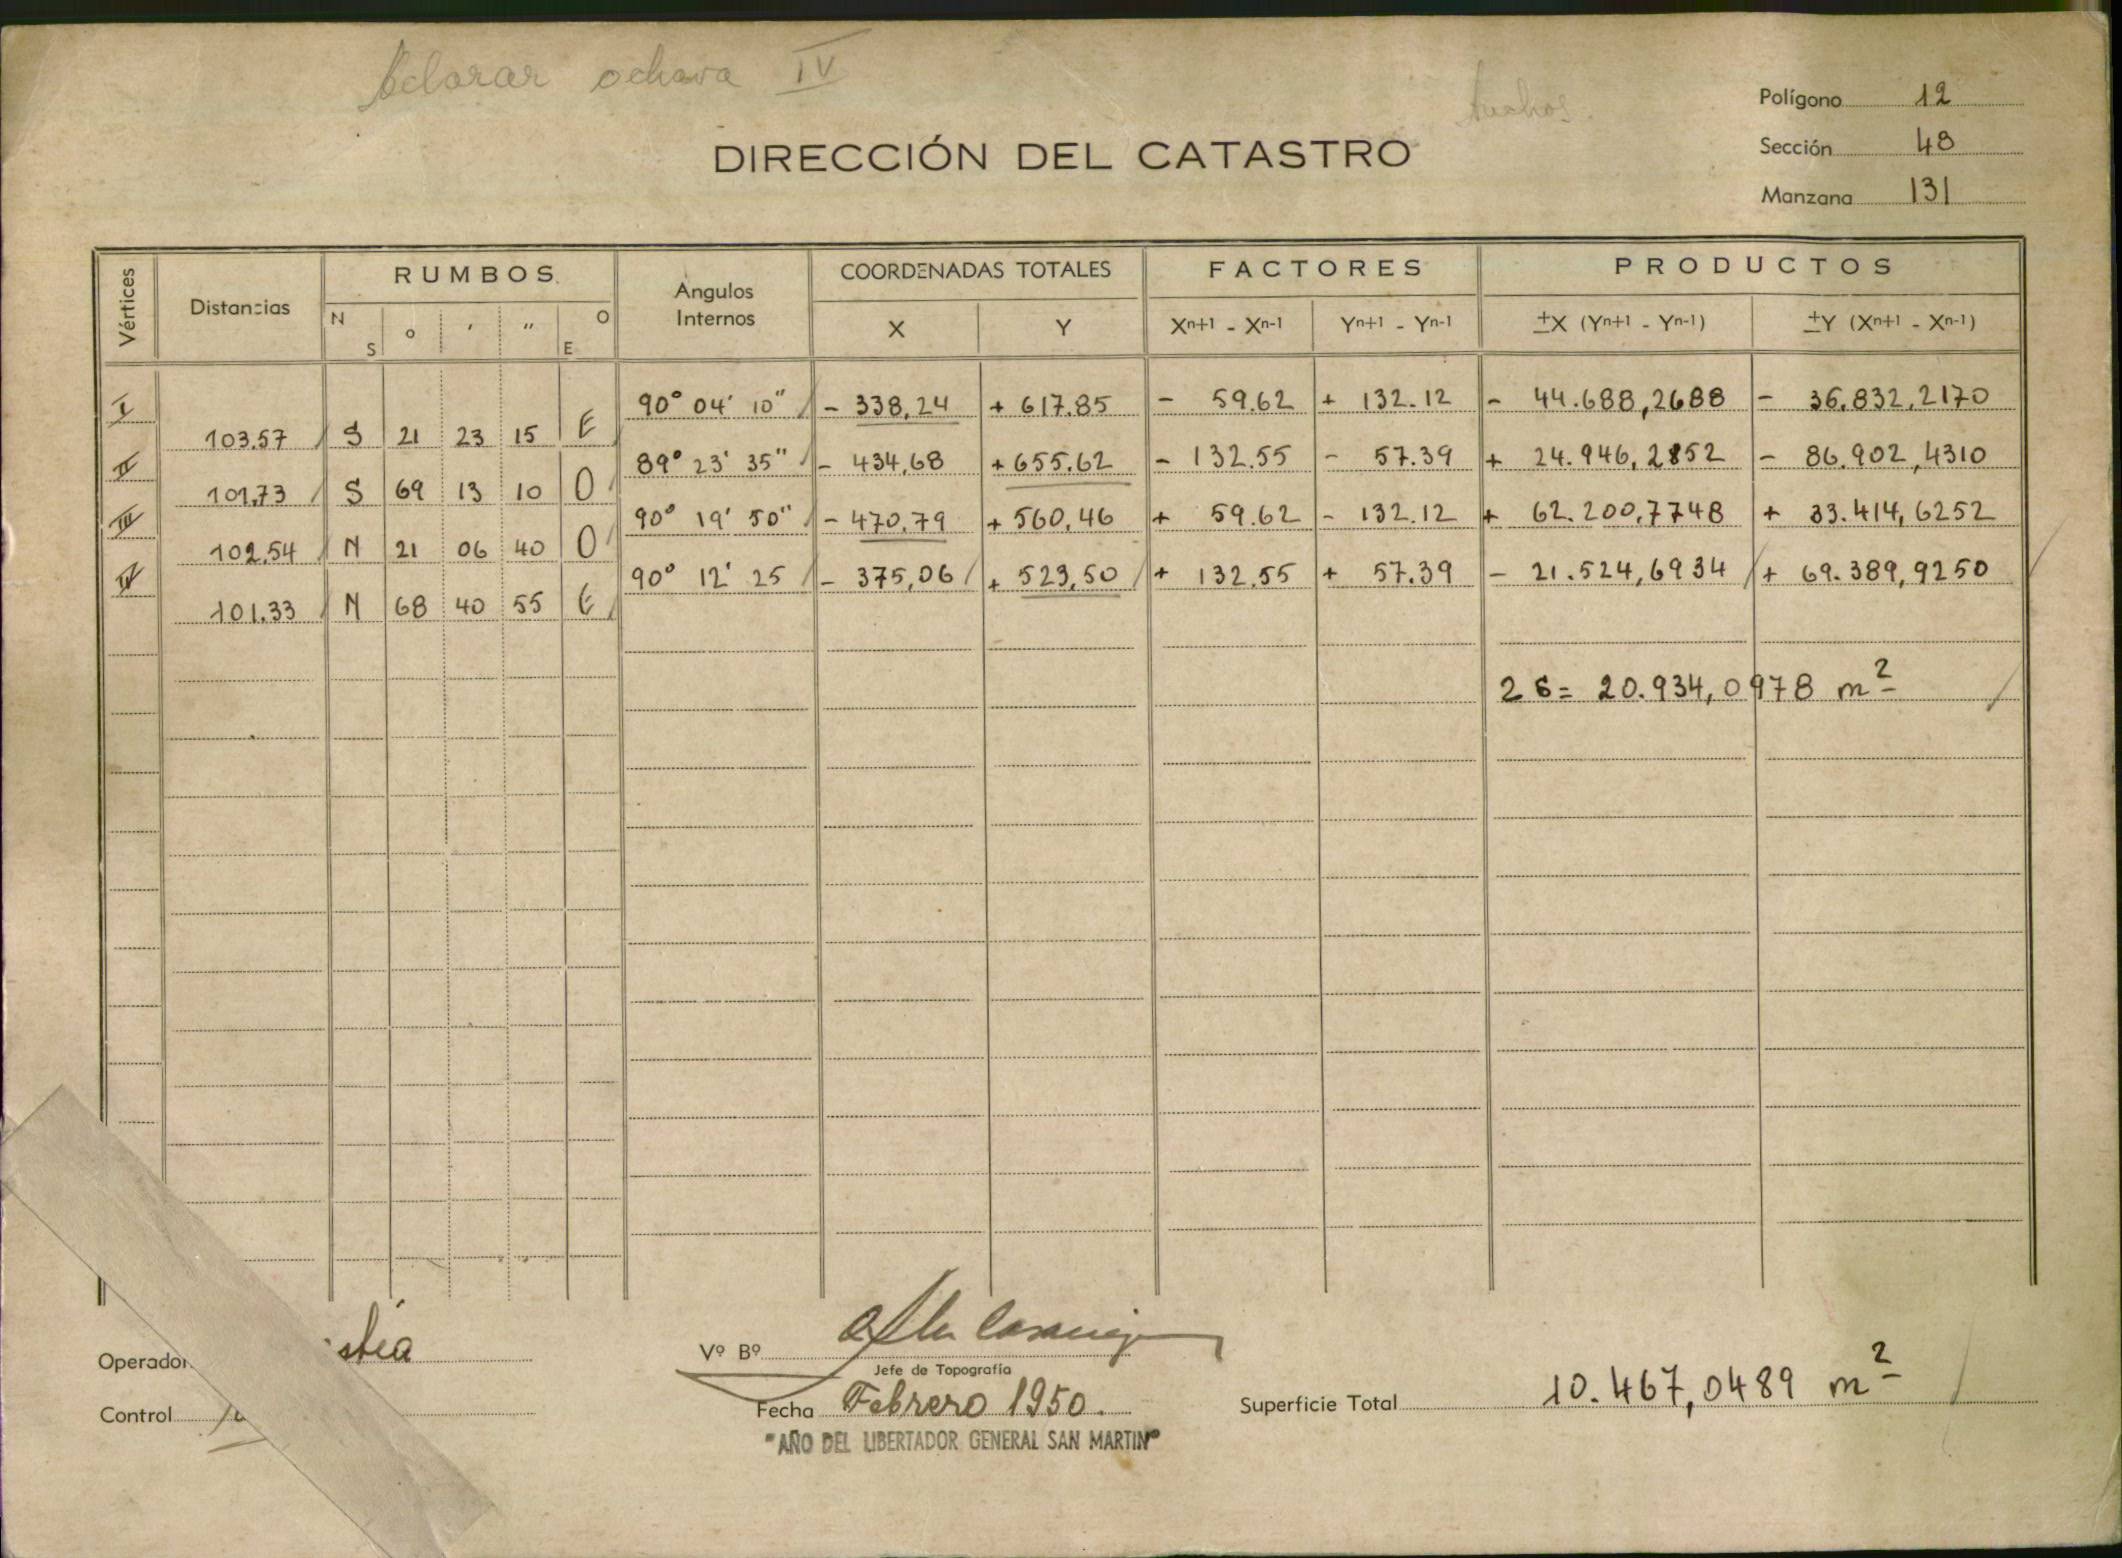 Aclarar ochava IV
Polígono 12
Sección 48
DIRECCIÓN DEL CATASTRO
Manzana 131
Vértices Distancias RUMBOS Angulos Internos COORDENADAS TOTALES FACTORES PRODUCTOS
N S ° ′ ″ O E X Y Xⁿ⁺¹ - Xⁿ⁻¹ Yⁿ⁺¹ - Yⁿ⁻¹ ±X (Yⁿ⁺¹ - Yⁿ⁻¹) ±Y (Xⁿ⁺¹ - Xⁿ⁻¹)
I 90° 04' 10" - 338,24 + 617.85 - 59.62 + 132.12 - 44.688,2688 - 36.832,2170
103.57 S 21 23 15 E
II 89° 23' 35" - 434,68 + 655.62 - 132.55 - 57.39 + 24.946,2852 - 86.902,4310
101,73 S 69 13 10 O
III 90° 19' 50" - 470.79 + 560,46 + 59.62 - 132.12 + 62.200,7748 + 33.414,6252
102.54 N 21 06 40 O
IV 90° 12' 25 - 375,06 + 523,50 + 132.55 + 57.39 - 21.524,6934 + 69.389,9250
101.33 N 68 40 55 E
2S = 20.934,0978 m²
Operador
Vº Bº
Jefe de Topografía
Control
Fecha Febrero 1950.
Superficie Total 10.467,0489 m²
"AÑO DEL LIBERTADOR GENERAL SAN MARTIN"